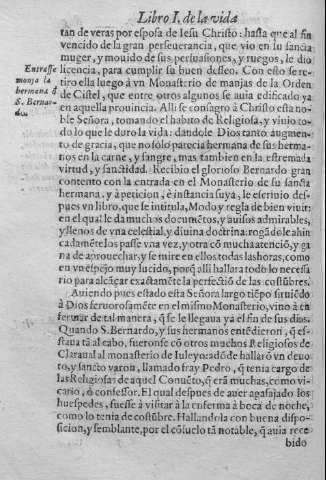 Libro I. de la vida
tan de veras por esposa de Iesu Christo: hasta que al fin
vencido de la gran perseuerancia, que vio en su sancta
muger, y mouido de sus persuasiones, y ruegos, le dio
Entrasse
monja la
hermana d̃
S. Bernar-
do.
licencia, para cumplir su buen desseo. Con esto se re-
tiro ella luego à vn Monasterio de monjas de la Orden
de Cistel, que entre otros algunos se auia edificado ya
en aquella prouincia. Alli se consagrò à Christo esta no-
ble Señora, tomando el habito de Religiosa, y viuio to-
do lo que le duro la vida: dandole Dios tanto augmen-
to de gracia, que no sólo parecia hermana de sus herma-
nos en la carne, y sangre, mas tambien en la estremada
virtud, y sanctidad. Recibio el glorioso Bernardo gran
contento con la entrada en el Monasterio de su sancta
hermana. y à peticion, è instancia suya, le escriuio des-
pues vn libro, que se intitula, Modo, y regla de bien viuir:
en el qual le da muchos documẽtos, y auisos admirables,
y llenos de vna celestial, y diuina doctrina: rogãdole ahin
cadamẽte los passe vna vez, y otra cõ mucha atenció, y ga
na de aprouechar, y se mire en ellos todas las horas, como
en vn espejo muy lucido, porq̃ alli hallara todo lo necessa
rio para alcãçar exactamẽte la perfectiõ de las costũbres.
Auiendo pues estado esta Señora largo tiẽpo siruiẽdo
à Dios feruorosamẽte en el mismo Monasterio, vino à en
fermar de tal manera, q̃ se le llegaua ya el fin de sus dias.
Quando S. Bernardo, y sus hermanos entẽdieron, q̃ es-
taua tã al cabo, fueronse cõ otros muchos Religiosos de
Claraual al monasterio de Iuleyo: adõde hallarõ vn deuo
to, y sancto varon, llamado fray Pedro, q̃ tenia cargo de
las Religiosas de aquel Conuẽto, q̃ erã muchas, como vi-
cario, ó confessor. El qual despues de auer agasajado los
huespedes, fuesse à visitar à la enferma à boca de noche,
como lo tenia de costũbre. Hallandola con buena dispo-
sicion, y semblante, por el cõsuelo tã notable, q̃ auia rece
bido